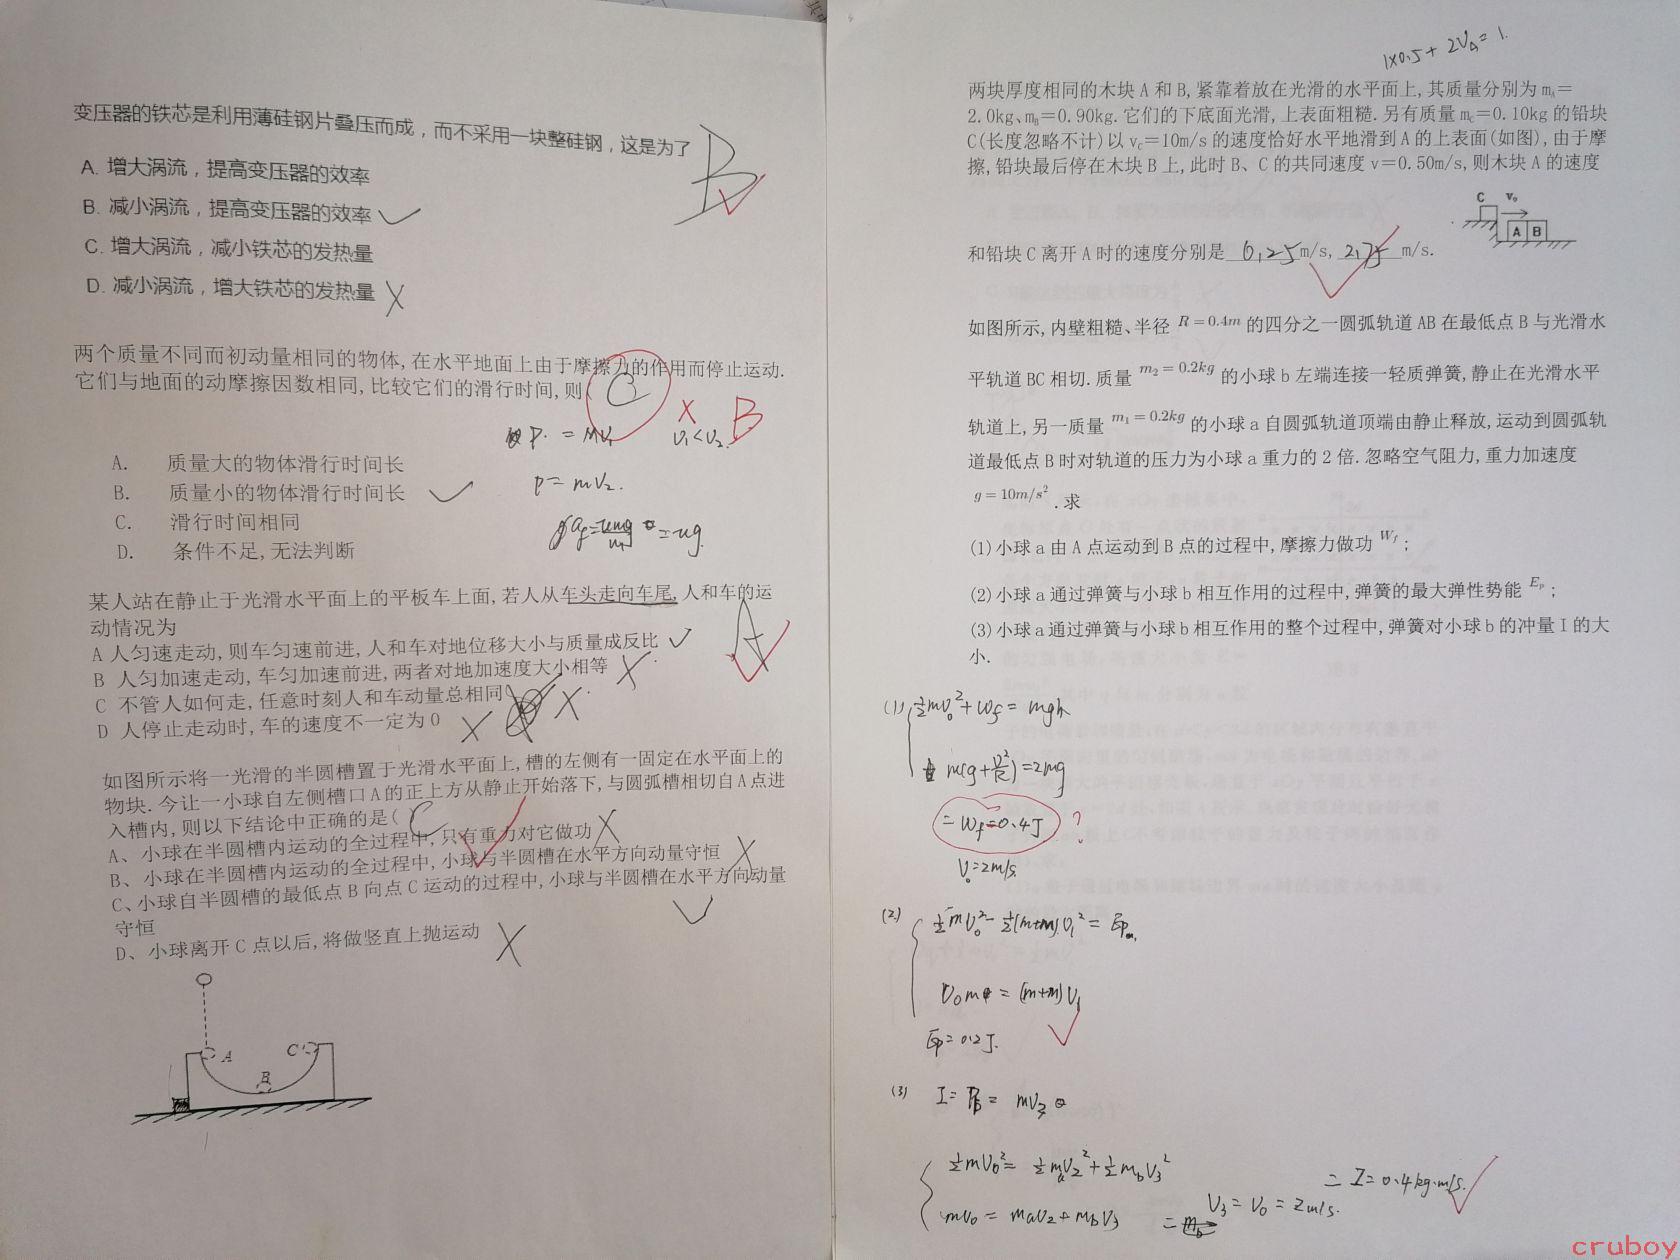 变压器的铁芯是利用薄硅钢片叠压而成，而不采用一块整硅钢，这是为了
B
A. 增大涡流，提高变压器的效率
B. 减小涡流，提高变压器的效率
C. 增大涡流，减小铁芯的发热量
D. 减小涡流，增大铁芯的发热量
两个质量不同而初动量相同的物体,在水平地面上由于摩擦力的作用而停止运动.
它们与地面的动摩擦因数相同,比较它们的滑行时间,则(
C
B
P. = MV₁
V₁<V₂.
P = mV₂.
= ug.
A. 质量大的物体滑行时间长
B. 质量小的物体滑行时间长
C. 滑行时间相同
D. 条件不足,无法判断
某人站在静止于光滑水平面上的平板车上面,若人从车头走向车尾,人和车的运
动情况为
A
A 人匀速走动,则车匀速前进,人和车对地位移大小与质量成反比
B 人匀加速走动,车匀加速前进,两者对地加速度大小相等
C 不管人如何走,任意时刻人和车动量总相同
D 人停止走动时,车的速度不一定为0
如图所示将一光滑的半圆槽置于光滑水平面上,槽的左侧有一固定在水平面上的
物块.今让一小球自左侧槽口A的正上方从静止开始落下,与圆弧槽相切自A点进
入槽内,则以下结论中正确的是( C
A、小球在半圆槽内运动的全过程中,只有重力对它做功
B、小球在半圆槽内运动的全过程中,小球与半圆槽在水平方向动量守恒
C、小球自半圆槽的最低点B向点C运动的过程中,小球与半圆槽在水平方向动量
守恒
D、小球离开C点以后,将做竖直上抛运动
A
C
B
1×0.5+ 2VA= 1.
两块厚度相同的木块A和B,紧靠着放在光滑的水平面上,其质量分别为mA=
2.0kg、mB=0.90kg.它们的下底面光滑,上表面粗糙.另有质量mC=0.10kg的铅块
C(长度忽略不计)以vC=10m/s的速度恰好水平地滑到A的上表面(如图),由于摩
擦,铅块最后停在木块B上,此时B、C的共同速度v=0.50m/s,则木块A的速度
C v₀
A B
和铅块C离开A时的速度分别是 0.25 m/s, 2.75 m/s.
如图所示,内壁粗糙、半径 R = 0.4m 的四分之一圆弧轨道AB在最低点B与光滑水
平轨道BC相切.质量 m₂ = 0.2kg 的小球b左端连接一轻质弹簧,静止在光滑水平
轨道上,另一质量 m₁ = 0.2kg 的小球a自圆弧轨道顶端由静止释放,运动到圆弧轨
道最低点B时对轨道的压力为小球a重力的2倍.忽略空气阻力,重力加速度
g = 10m/s² .求
(1)小球a由A点运动到B点的过程中,摩擦力做功 Wf ;
(2)小球a通过弹簧与小球b相互作用的过程中,弹簧的最大弹性势能 Ep ;
(3)小球a通过弹簧与小球b相互作用的整个过程中,弹簧对小球b的冲量I的大
小.
(1) ½mV₀²+Wf = mgh
m(g+V²/R)=2mg
= Wf=0.4J ?
V₀=2m/s
(2) ½mV₀²- ½(m+m)V₁² = Epm.
V₀m = (m+m)V₁
Ep= 0.2J.
(3) I= = mV₃
½mV₀²= ½maV₂²+½mbV₃²
mV₀ = maV₂+mbV₃
V₃ = V₀ = 2m/s.
= I=0.4kg·m/s.
cruboy